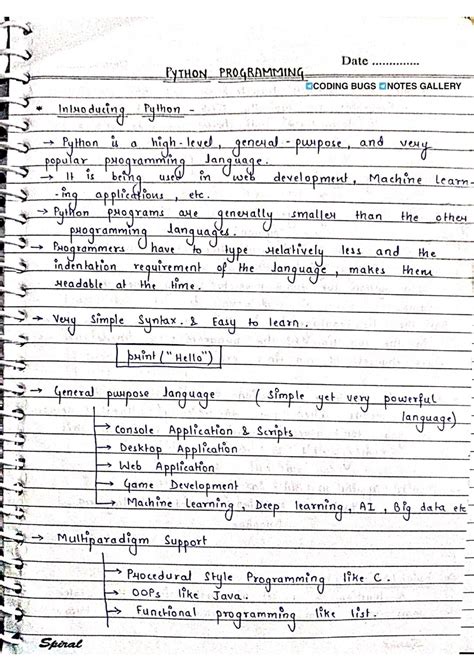 Date ..............
PYTHON PROGRAMMING
CODING BUGS NOTES GALLERY
* Introducing Python -
→ Python is a high-level, general-purpose, and very
popular programming language.
→ It is being used in web development, Machine Learn-
-ing applications, etc.
→ Python programs are generally smaller than the other
programming languages.
→ Programmers have to type relatively less and the
indentation requirement of the language, makes them
readable at the time.
→ Very Simple Syntax. & Easy to learn.
print ("Hello")
→ General purpose language ( Simple yet very powerful
language)
→ Console Application & Scripts
→ Desktop Application
→ Web Application
→ Game Development
→ Machine Learning, Deep learning, AI, Big data etc
→ Multiparadigm Support
→ Procedural Style Programming like C.
→ OOPs like Java.
→ Functional programming like list.
Spiral